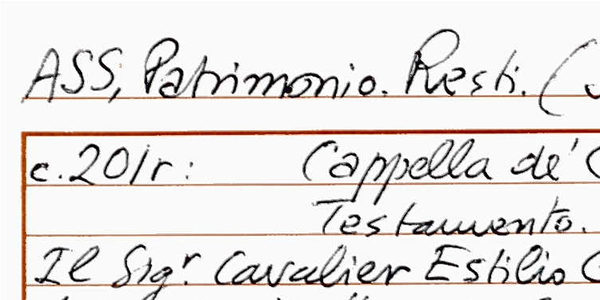 ASS, Patrimonio. Resti. (
c. 201r: Cappella de'
Testamento.
Il Sigr Cavalier Estilio